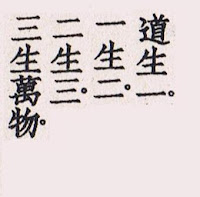 道生一。
一生二。
二生三。
三生萬物。